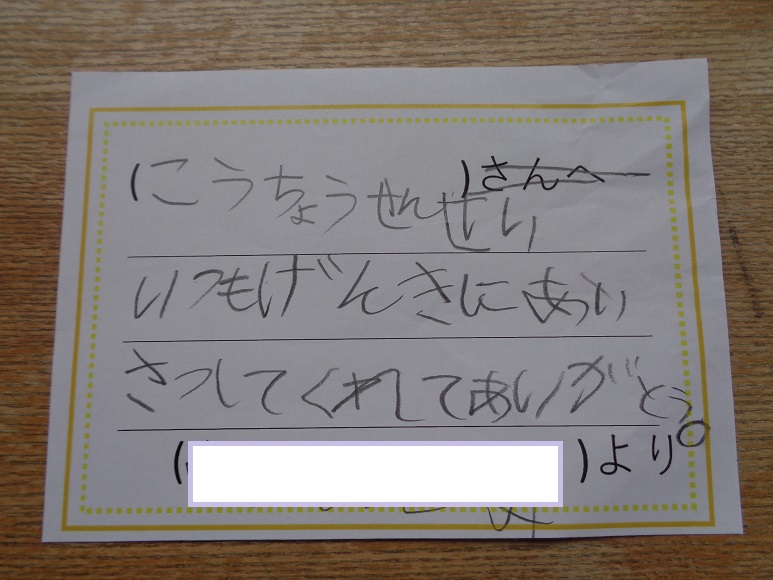 (こうちょうせんせい)さんへ
いつもげんきにあい
さつしてくれてありがとう。
( )より